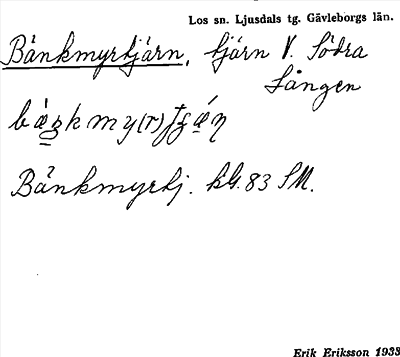 Los sn. Ljusdals tg. Gävleborgs län.
Bänkmyrtjärn, tjärn V. Södra
Lången
Bänkmyrtj. bl. 83 SM.
Erik Eriksson 1933